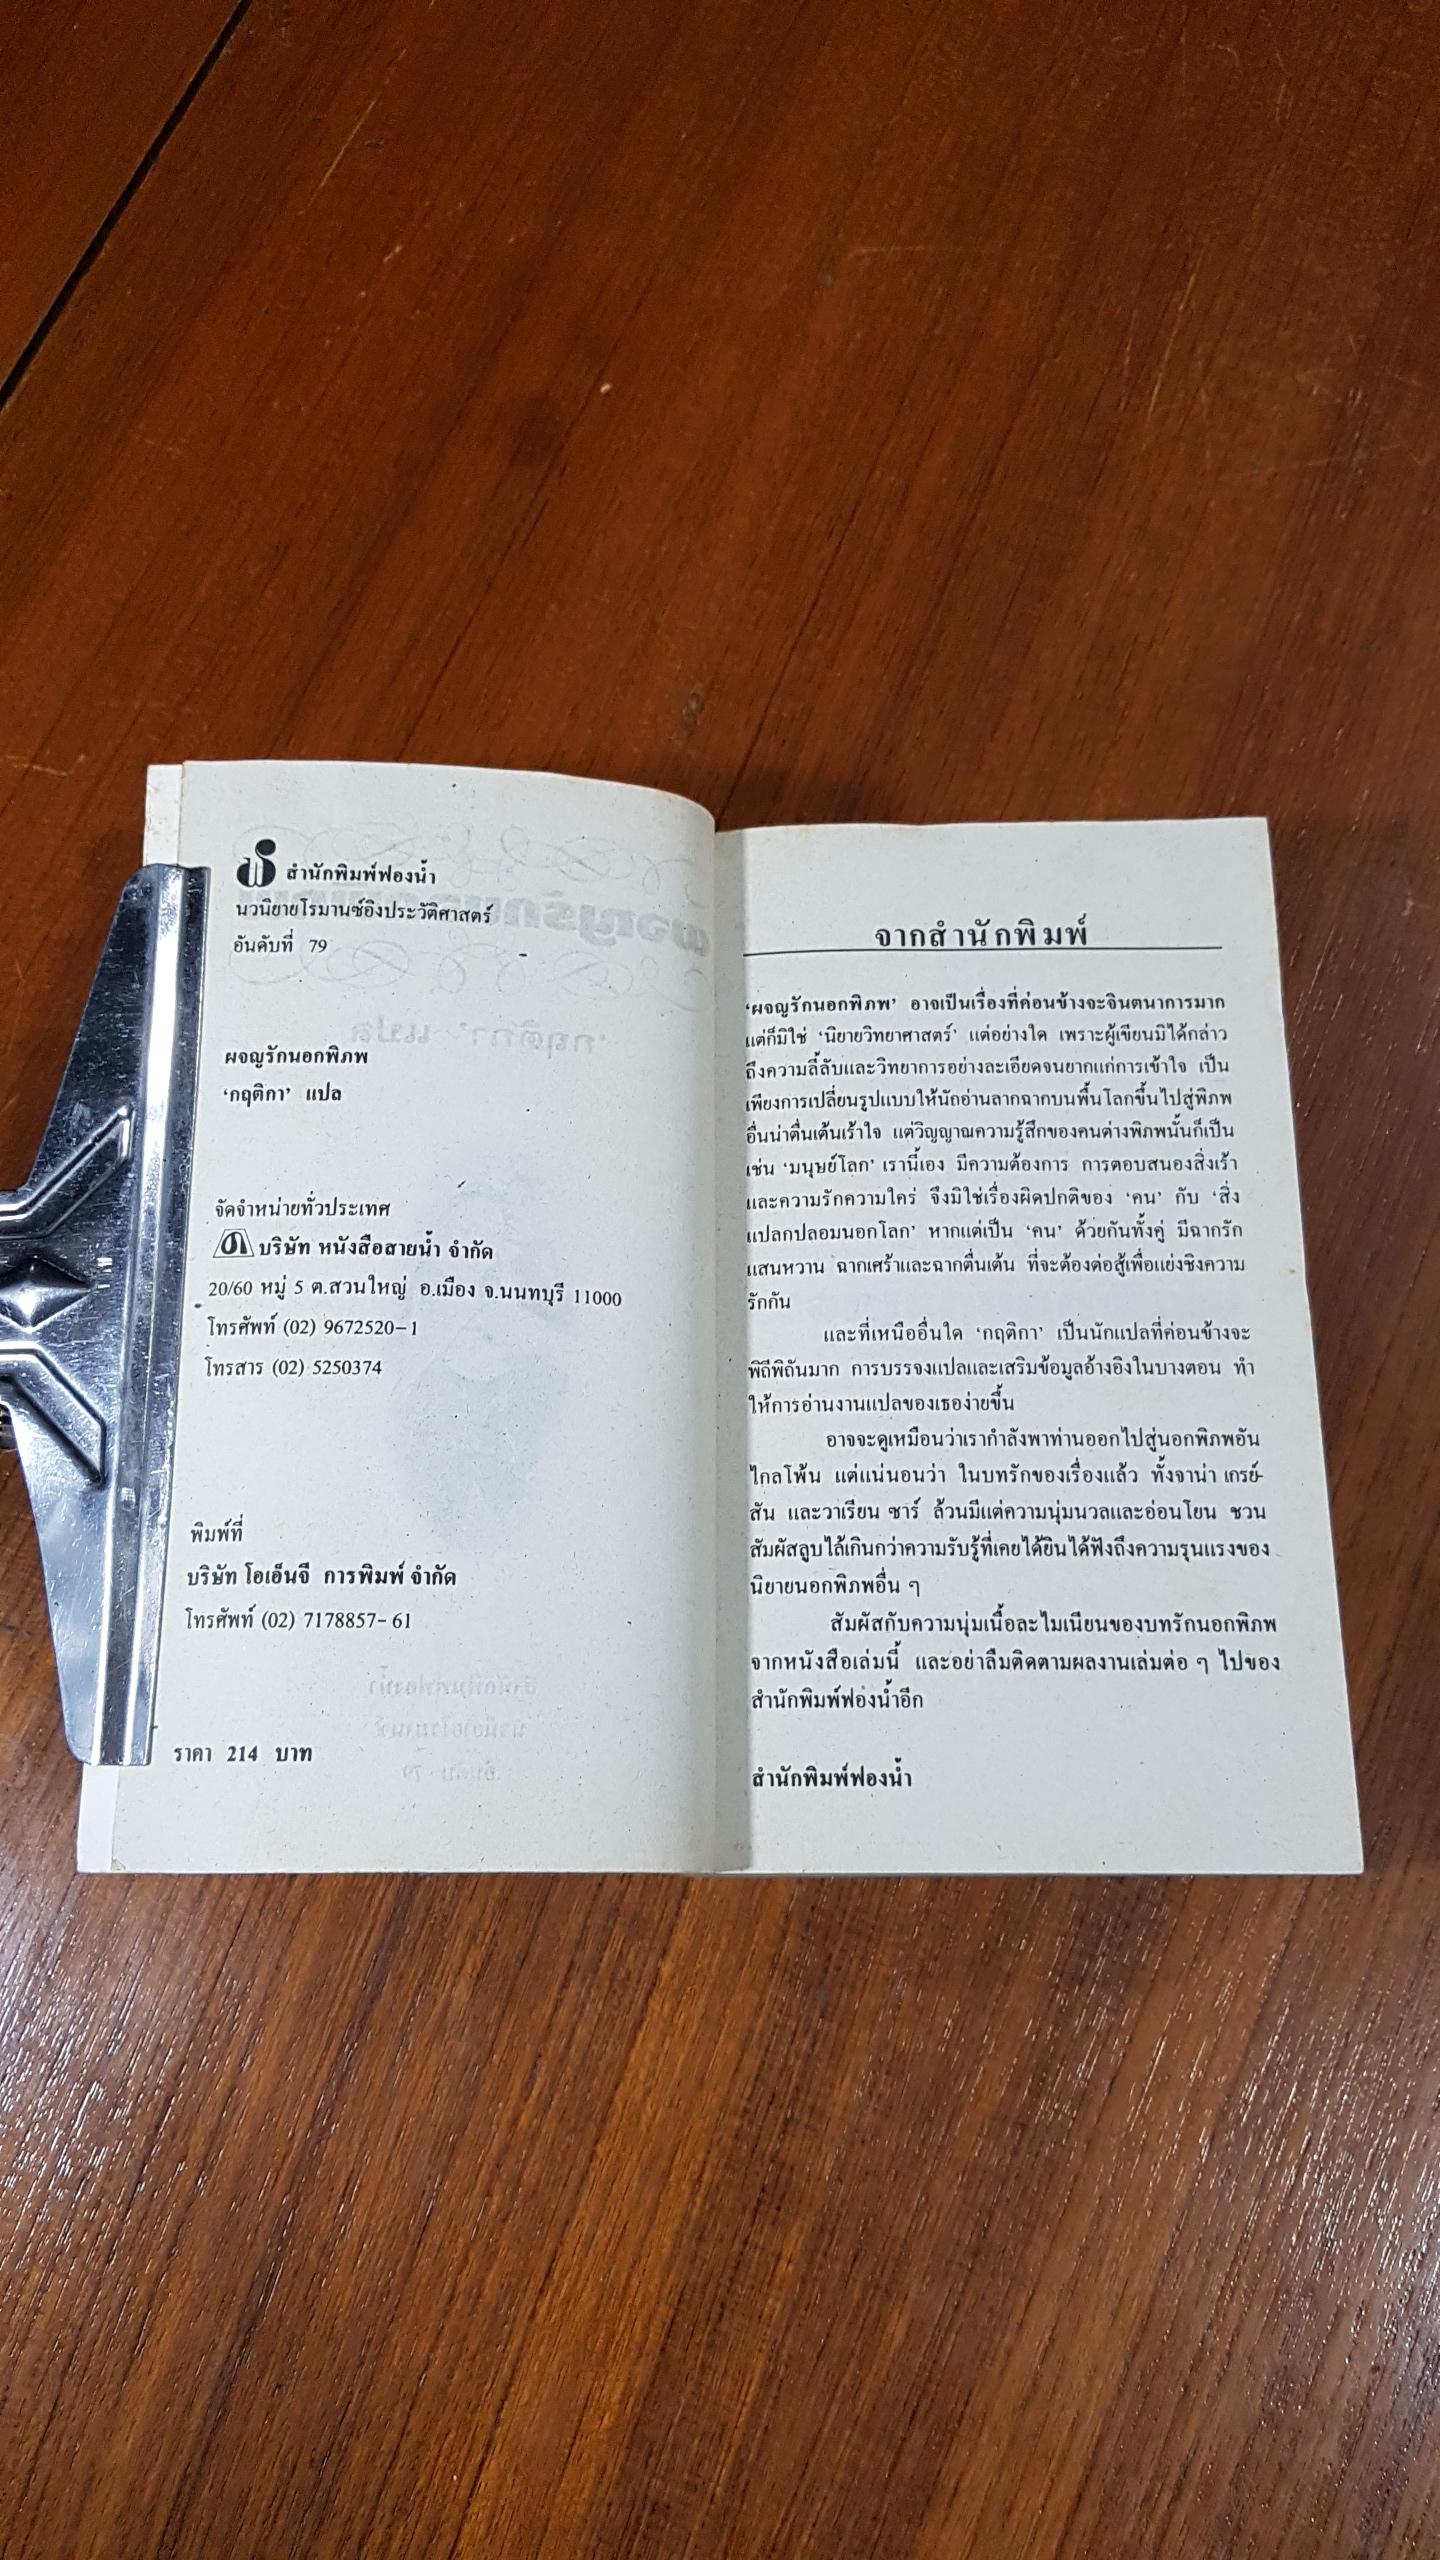 สำนักพิมพ์ฟองน้ำ
นวนิยายโรมานซ์อิงประวัติศาสตร์
อันดับที่ 79
ผจญรักนอกพิภพ
‘กฤติกา’ แปล
จัดจำหน่ายทั่วประเทศ
บริษัท หนังสือสายน้ำ จำกัด
20/60 หมู่ 5 ต.สวนใหญ่ อ.เมือง จ.นนทบุรี 11000
โทรศัพท์ (02) 9672520-1
โทรสาร (02) 5250374
พิมพ์ที่
บริษัท โอเอ็นจี การพิมพ์ จำกัด
โทรศัพท์ (02) 7178857-61
ราคา 214 บาท
จากสำนักพิมพ์
‘ผจญรักนอกพิภพ’ อาจเป็นเรื่องที่ค่อนข้างจะจินตนาการมาก
แต่ก็มิใช่ ‘นิยายวิทยาศาสตร์’ แต่อย่างใด เพราะผู้เขียนมิได้กล่าว
ถึงความลี้ลับและวิทยาการอย่างละเอียดจนยากแก่การเข้าใจ เป็น
เพียงการเปลี่ยนรูปแบบให้นักอ่านลากฉากบนพื้นโลกขึ้นไปสู่พิภพ
อื่นน่าตื่นเต้นเร้าใจ แต่วิญญาณความรู้สึกของคนต่างพิภพนั้นก็เป็น
เช่น ‘มนุษย์โลก’ เรานี้เอง มีความต้องการ การตอบสนองสิ่งเร้า
และความรักความใคร่ จึงมิใช่เรื่องผิดปกติของ ‘คน’ กับ ‘สิ่ง
แปลกปลอมนอกโลก’ หากแต่เป็น ‘คน’ ด้วยกันทั้งคู่ มีฉากรัก
แสนหวาน ฉากเศร้าและฉากตื่นเต้น ที่จะต้องต่อสู้เพื่อแย่งชิงความ
รักกัน
และที่เหนืออื่นใด ‘กฤติกา’ เป็นนักแปลที่ค่อนข้างจะ
พิถีพิถันมาก การบรรจงแปลและเสริมข้อมูลอ้างอิงในบางตอน ทำ
ให้การอ่านงานแปลของเธอง่ายขึ้น
อาจจะดูเหมือนว่าเรากำลังพาท่านออกไปสู่นอกพิภพอัน
ไกลโพ้น แต่แน่นอนว่า ในบทรักของเรื่องแล้ว ทั้งจาน่า เกรย์-
สัน และวาเรียน ซาร์ ล้วนมีแต่ความนุ่มนวลและอ่อนโยน ชวน
สัมผัสลูบไล้เกินกว่าความรับรู้ที่เคยได้ยินได้ฟังถึงความรุนแรงของ
นิยายนอกพิภพอื่น ๆ
สัมผัสกับความนุ่มเนื้อละไมเนียนของบทรักนอกพิภพ
จากหนังสือเล่มนี้ และอย่าลืมติดตามผลงานเล่มต่อ ๆ ไปของ
สำนักพิมพ์ฟองน้ำอีก
สำนักพิมพ์ฟองน้ำ